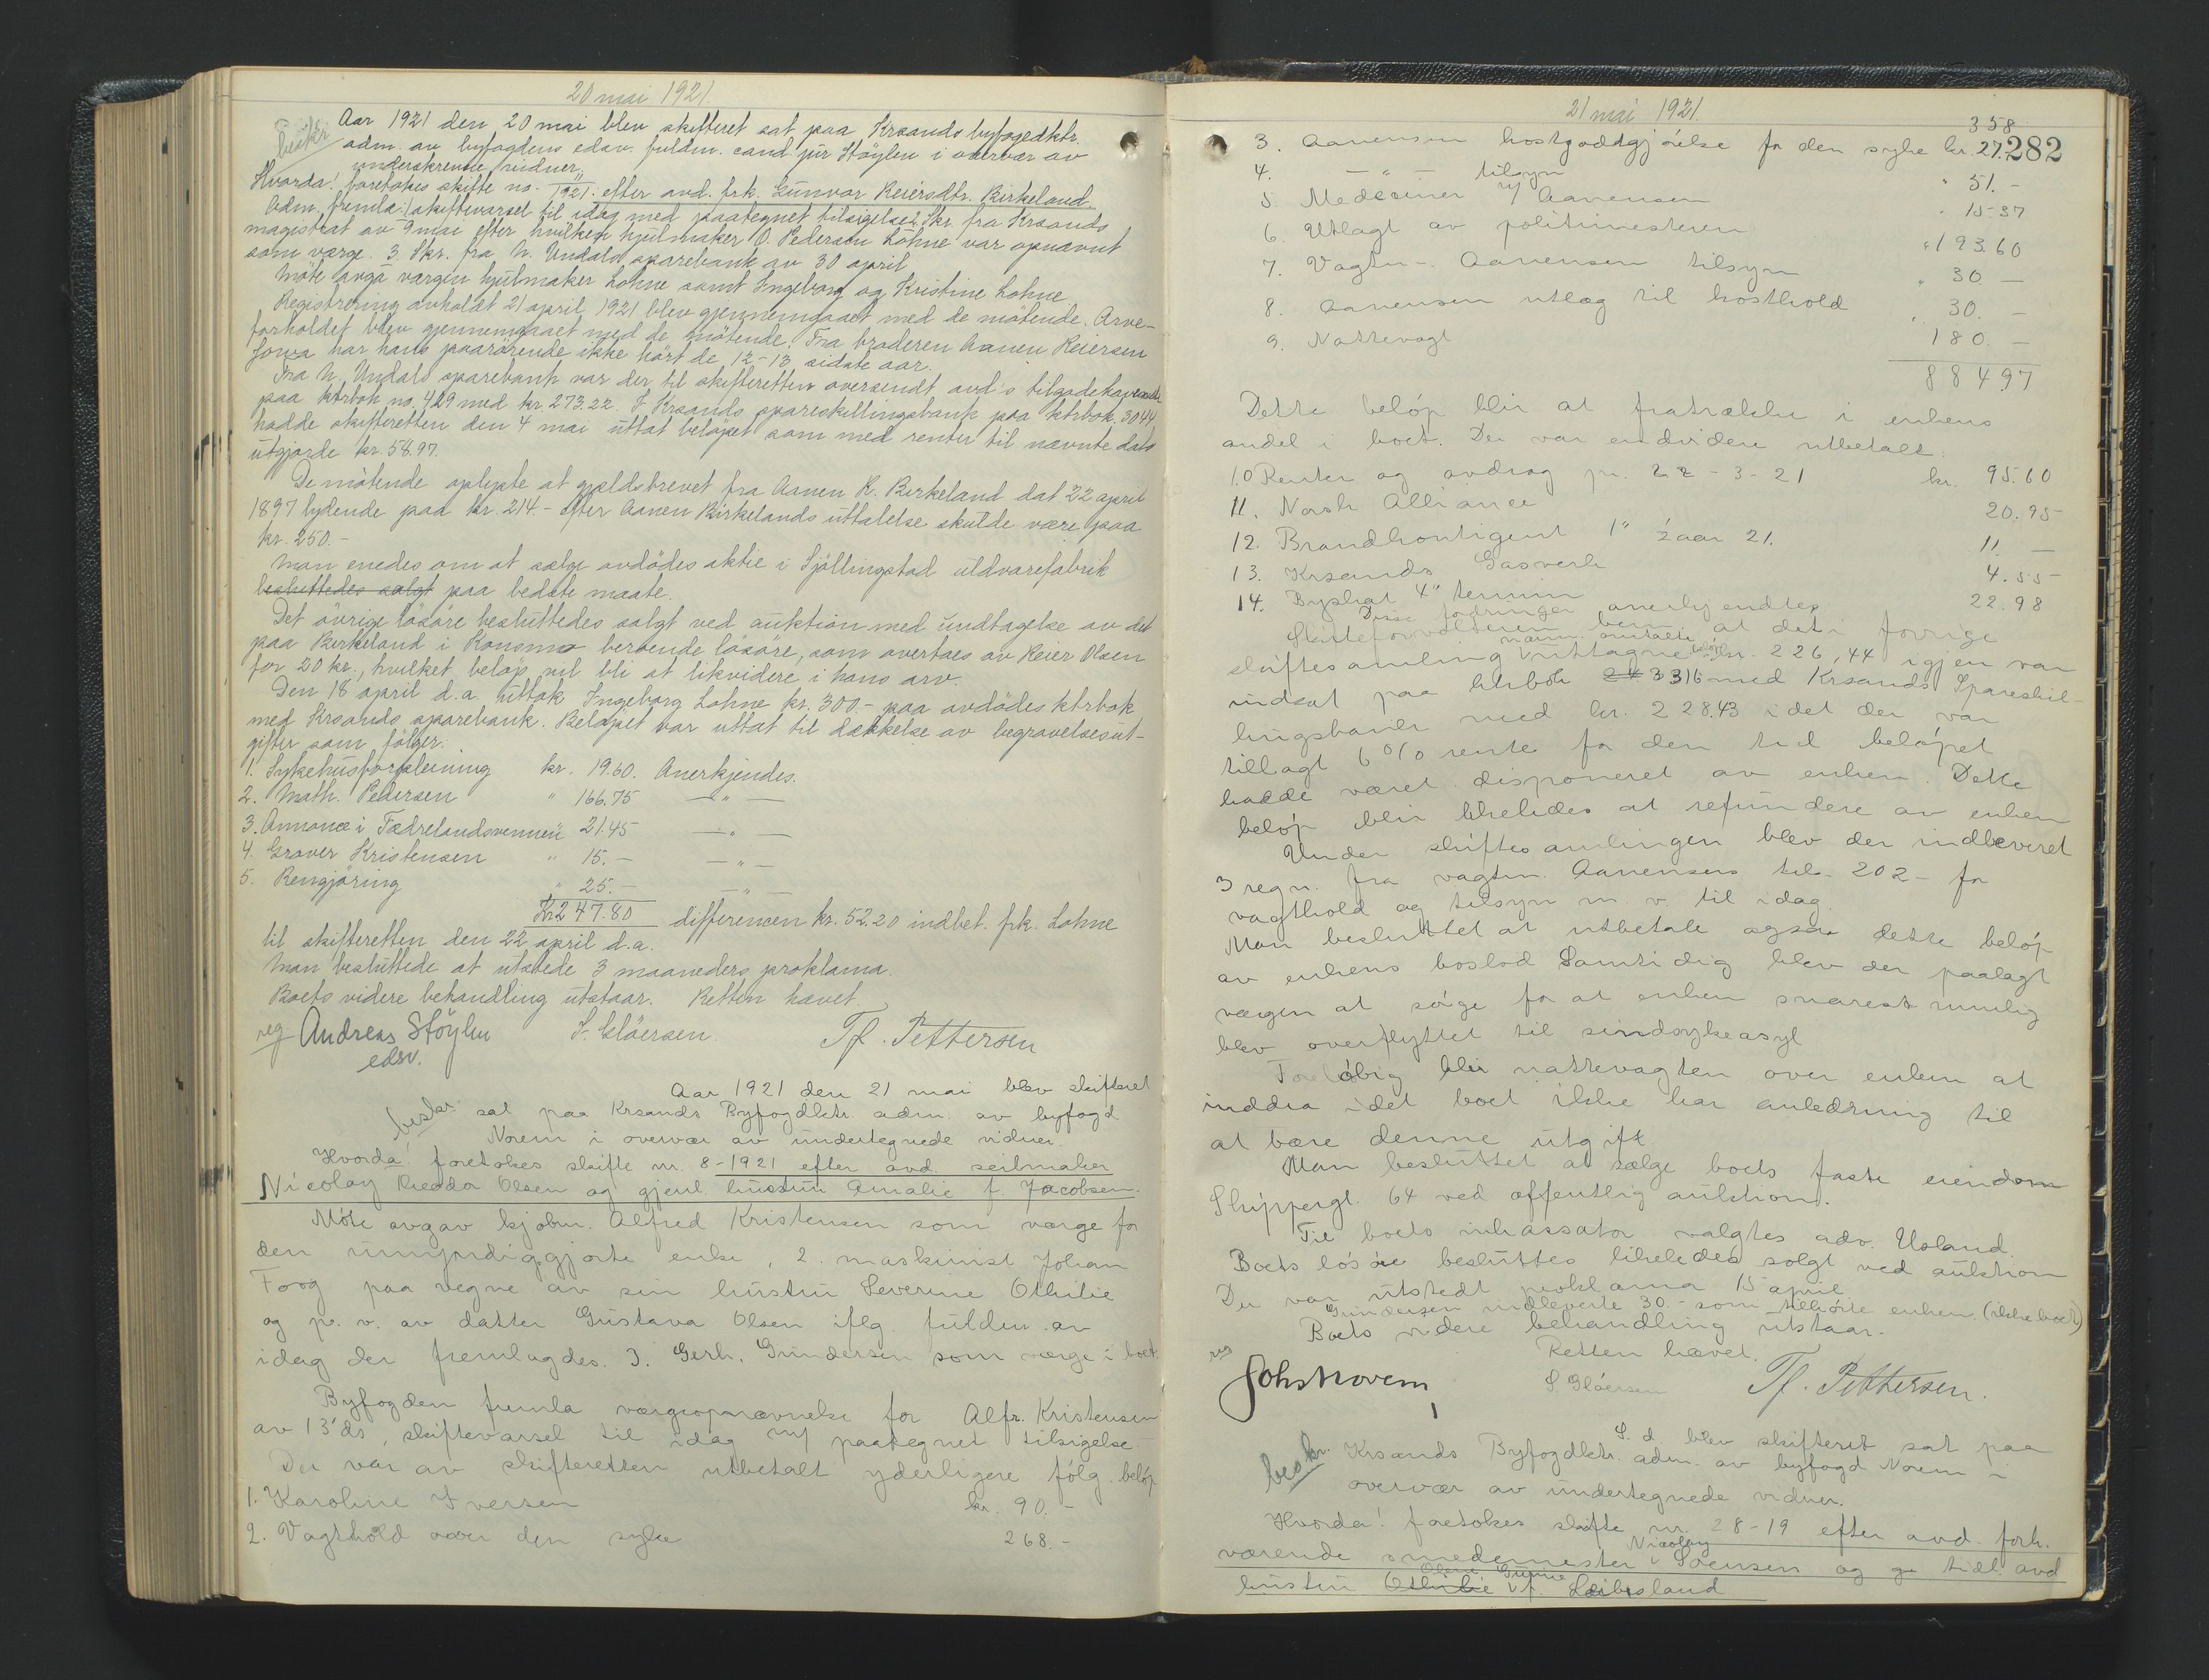 20 mai 1921.
beskr.
Aar 1921 den 20 mai blev skifteret sat paa Krsands byfogedktr.
adm. av byfogdens edsv. fuldm. cand. jur Støylen i overvær av
underskrevne vidner.
Hvorda! foretokes skifte no. " 1921 efter avd. frk. Gunvor Reiersdtr. Birkeland.
Adm. fremla: 1 skiftevarsel til idag med paategnet tilsigelse 2 Skr. fra Krsands
magistrat av 9 mai efter hvilken hjulmaker O. Pedersen Lohne var opnævnt
som værge. 3. Skr. fra N. Undals sparebank av 30 april
Møte avga værgen hjulmaker Lohne samt Ingeborg og Kristine Lohne
Registrering avholdt 21 april 1921 blev gjennemgaaet med de møtende. Arve-
forholdet blev gjennemgaaet med de møtende. Fra broderen Aanen Reiersen
Iowa har hans paarørende ikke hørt de 12-13 sidste aar.
Fra N. Undals sparebank var der til skifteretten oversendt avd's tilgodehavende
paa ktrbok no. 429 med kr. 273.22. I Krsands spareskillingsbank paa ktrbok. 3044
hadde skifteretten den 4 mai uttat beløpet som med renter til nævnte dato
utgjorde kr. 58.97.
De møtende oplyste at gjeldsbrevet fra Aanen R. Birkeland dat 22 april
1897 lydende paa kr. 214.- efter Aanen Birkelands uttalelse skulde være paa
kr. 250.-
Man enedes om at sælge avdødes aktie i Sjøllingstad uldvarefabrik
besluttedes solgt paa bedste maate.
Det øvrige løsøre besluttedes solgt ved auktion med undtagelse av det
paa Birkeland i Konsmo beroende løsøre, som overtaes av Reier Olsen
for 20 kr., hvilket beløp vil bli at likvidere i hans arv.
Den 18 april d.a. uttok Ingeborg Lohne kr. 300.- paa avdødes ktrbok
med Krsands sparebank. Beløpet var uttat til dækkelse av begravelsesut-
gifter som følger.
1. Sykehusforpleining kr. 19.60. Anerkjendes.
2. Math. Pedersen " 166.75 — " —
3. Annonce i Fædrelandsvennen " 21.45 — " —
4. Graver Kristensen " 15.- — " —
5. Rengjøring " 25.- — " —
Kr 247.80 differencen kr. 52.20 indbet. frk. Lohne
til skifteretten den 22 april d.a.
Man besluttede at utstede 3 maaneders proklama.
Boets videre behandling utstaar. Retten hævet.
reg Andreas Støylen S. Gløersen. Tf. Pettersen
edsv.
Aar 1921 den 21 mai blev skifteret
beskr. sat paa Krsands Byfogdktr. adm. av byfogd
Norem i overvær av undertegnede vidner.
Hvorda! foretokes skifte nr. 8-1921 efter avd. seilmaker
Nicolay Olsen og gjenl. hustru Amalie f. Jacobsen.
Møte avgav kjøbm. Alfred Kristensen som værge for
den umyndiggjorte enke, 2. maskinist Johan
Foog paa vegne av sin hustru Severine Othilie
og p. v. av datter Gustava Olsen iflg. fuldm. av
idag der fremlagdes. 3. Gerh. Gundersen som værge i boet.
Byfogden fremla værgeopnævnelse for Alfr. Kristensen
av 13 ds, skiftevarsel til idag m/ paategnet tilsigelse.
Der var av skifteretten utbetalt yderligere følg. beløp
1. Karoline Iversen kr. 90.-
2. Vagthold over den syke 268.-
21 mai 1921.
358
282
3. Aanensen kostgodtgjørelse for den syke kr. 27.-
4. — " — tilsyn " 51.-
5. Medeciner v/ Aanensen " 15.37
6. Utlagt av politimesteren " 193.60
7. Vagtm. Aanensen tilsyn " 30.-
8. Aanensen utlæg til kosthold " 30.-
9. Nattevagt 180.-
884.97
Dette beløp blir at fratrække i enkens
andel i boet. Der var endvidere utbetalt.
10 Renter og avdrag pr. 22-3-21 kr. 95.60
11. Norsk Alliance 20.95
12. Brandkontigent 1" ½ aar 21. 11.-
13. Krsands Gasverk 4.55
14. Byskat 4" termin 22.98
Disse fordringer anerkjendtes
Skifteforvalteren bem. at det i forrige
skiftesamling nævn. omtalte uttagne beløp kr. 226,44 igjen var
indsat paa bkbok 3316 med Krsands Spareskil-
lingsbank med kr. 228.43 idet der var
tillagt 6% rente for den tid beløpet
hadde været disponeret av enken. Dette
beløp blir likeledes at refundere av enken
Under skiftesamlingen blev der indleveret
3 regn. fra vagtm. Aanensen tils. 202- for
vagthold og tilsyn m. v. til idag.
Man besluttet at utbetale ogsaa dette beløp
av enkens boslod Samtidig blev der paalagt
værgen at sørge for at enken snarest mulig
blev overflyttet til sindsykeasyl
Foreløbig blir nattevagten over enken at
inddra idet boet ikke har anledning til
at bære denne utgift
Man besluttet at sælge boets faste eiendom
Skippergt. 64 ved offentlig auktion.
Til boets inkassator valgtes adv. Usland.
Boets løsøre besluttes likeledes solgt ved auktion
Der var utstedt proklama 15 april
Gundersen indleverte 30.- som tilhørte enken (ikke boet)
Boets videre behandling utstaar.
Retten hævet.
reg
Johs Norem, S. Gløersen Tf. Pettersen.
S. d. blev skifteret sat paa
beskr. Krsands Byfogdktr. adm. av byfogd Norem i
overvær av undertegnede vidner.
Hvorda! foretokes skifte nr. 28-19 efter avd. forh.
værende smedemester Nicolay Soensen og gr tidl. avd
hustru Othilie Olene Gurine f. Leibsland